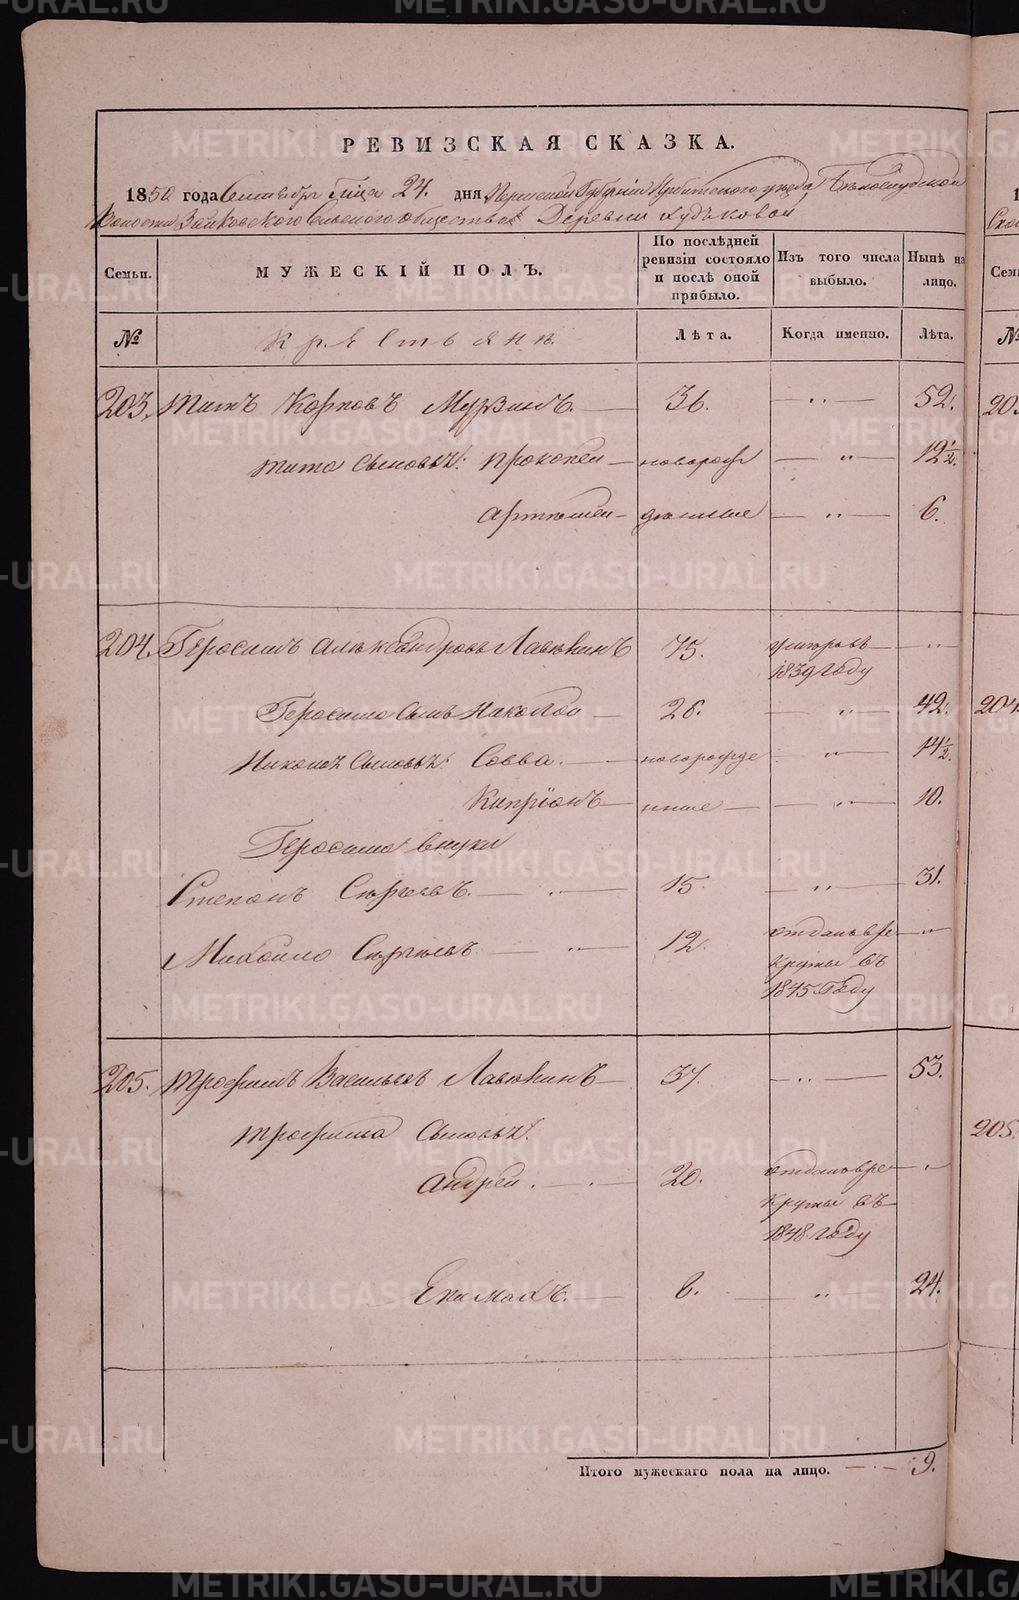 РЕВИЗСКАЯ СКАЗКА.
1850 года Сентября м̃ца 24. дня, Пермской Губернiи Ирбитского уѣзда Бѣлослудской
Волости Зайковского сельского общества Деревни
Семьи.
МУЖЕСКІЙ ПОЛЪ.
По послѣдней ревизіи состояло и послѣ оной прибыло.
Изъ того числа выбыло.
Нынѣ на лицо.
№
Крестьяне
Лѣта.
Когда именно.
Лѣта.
203. Титъ Карповъ Мурзинъ. 36. — „ — 52.
Тита Сыновья: Прокопей — новорож — „ — 12½.
Артемей — денные — „ — 6.
204. Герасимъ Александровъ Лавѣкинъ 75. умеръ въ 1839 году — „ —
Герасима Сынъ Николай — 26. — „ — 42.
Николая Сыновья: Савва. — новорожде — „ — 14½.
Кипріянъ — нные — „ — 10.
Герасима внуки
Степанъ Сергѣевъ. — „ — 15. — „ — 31.
Михайло Сергѣевъ — „ — 12. отданъ въ ре-
круты въ
1845 году — „ —
205. Трофимъ Васильевъ Лавѣкинъ — 37. — „ — 53.
Трофима Сыновья:
Андрей. — 20. отданъ въ ре-
круты въ
1848 году — „ —
8. — „ — 24.
Итого мужескаго пола на лицо. — 9.
METRIKI.GASO-URAL.RU